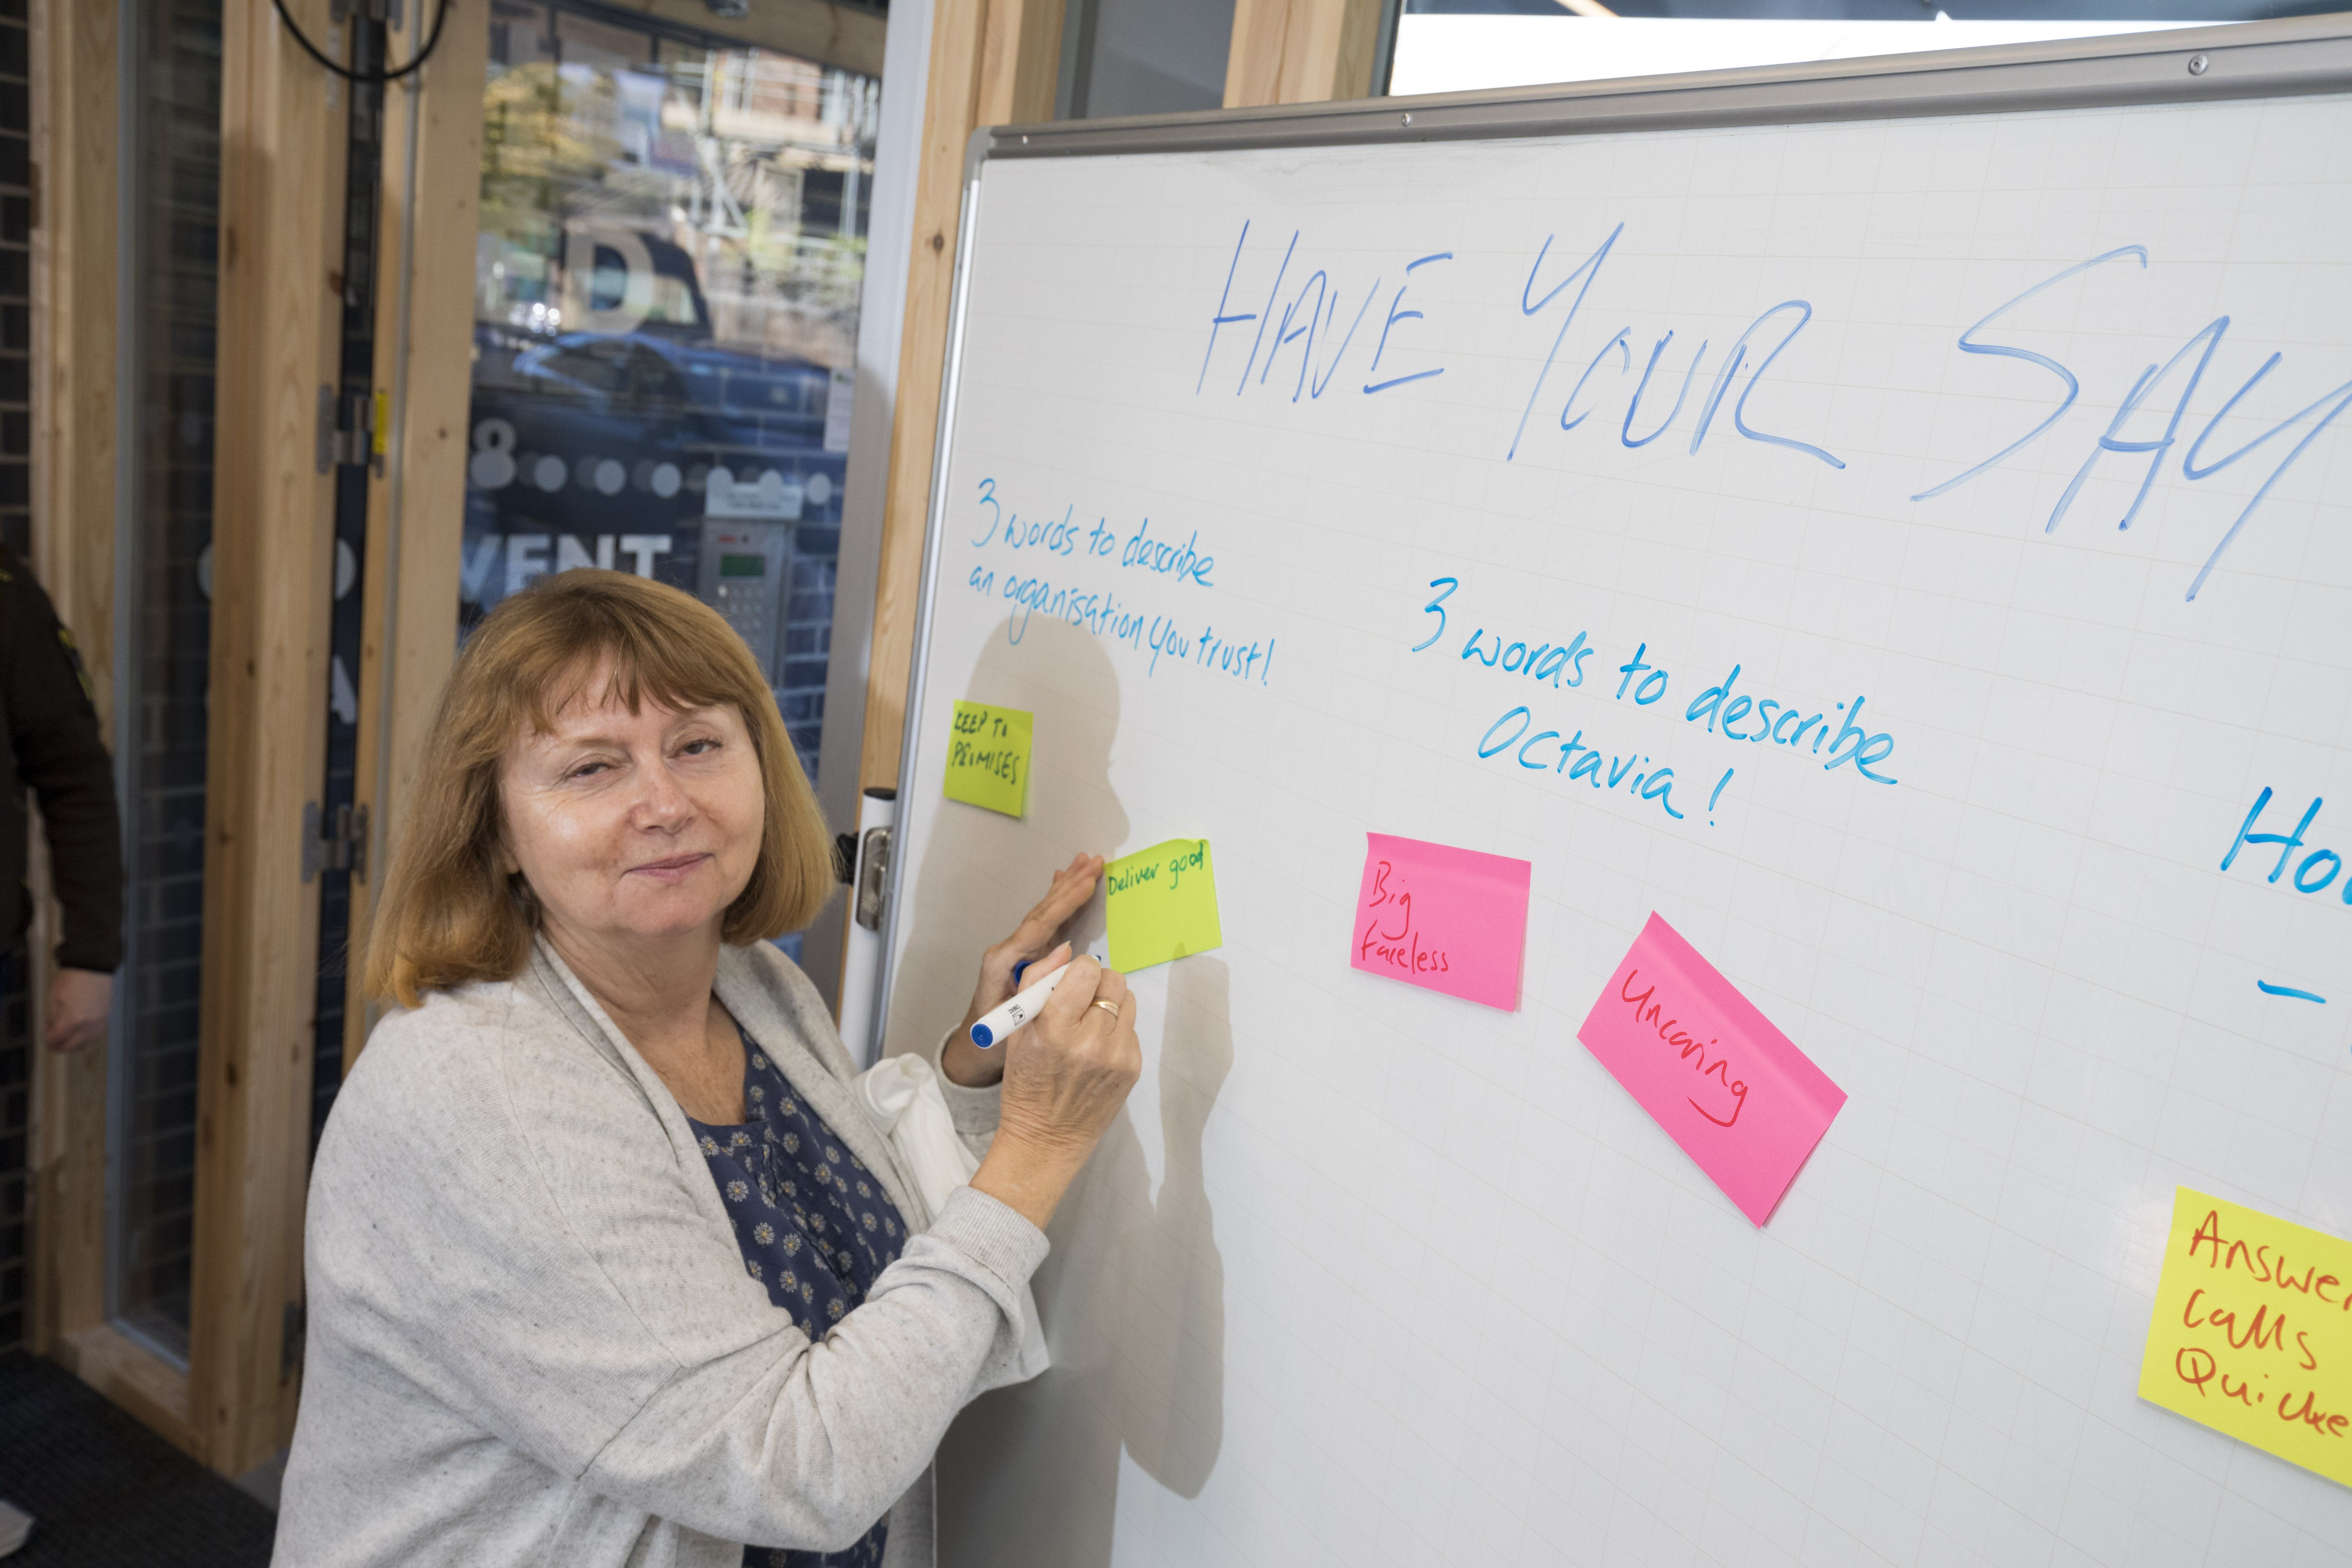 HAVE YOUR SAY
3 words to describe
an organisation you trust!
KEEP TO
PROMISES
Deliver good
3 words to describe
Octavia!
Big
faceless
Uncaring
Answer
Calls
Quicke
D
8
VENT